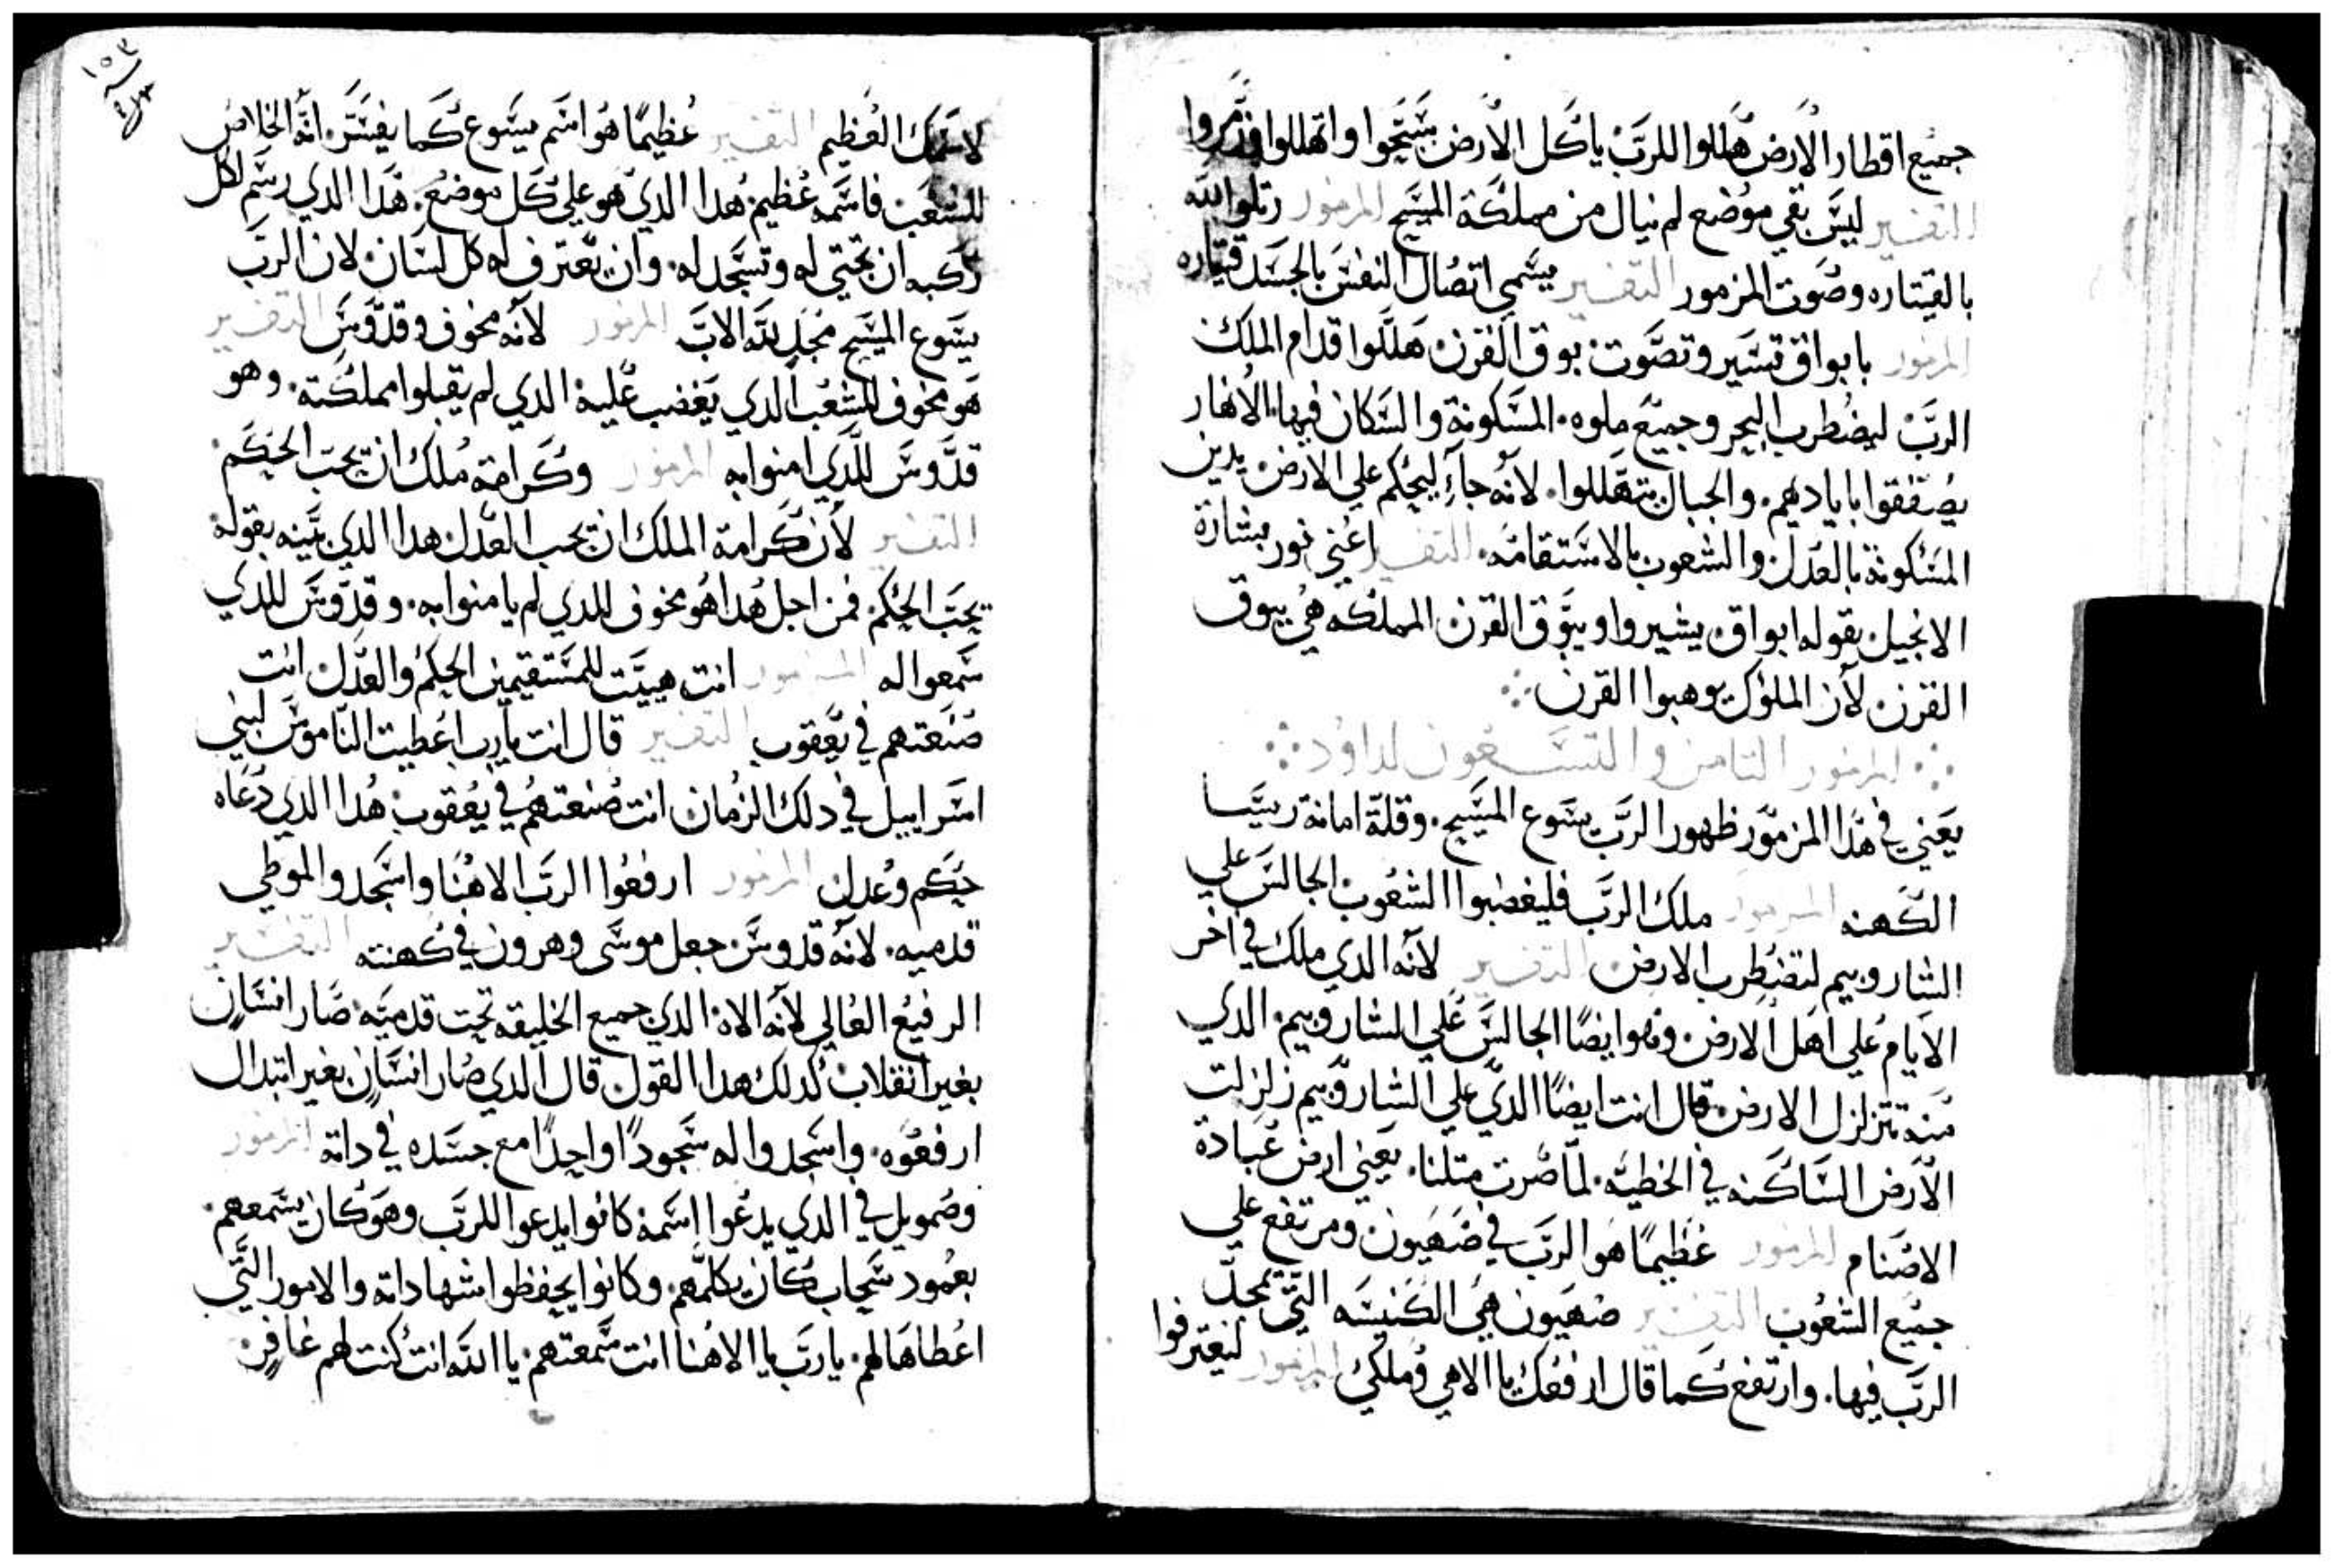 جميع اقطار الارض هللوا للرب ياكل الارض سبحوا واتهللوا وزمروا
التفسير ليس بقي موضع لم نيال من مملكة المسيح المزمور رتلوا لله
بالقيتاره وصوت المزمور التفسير يسمي اتصال النفس بالجسد قيتاره
المزمور بابواق تسير وتصوت بوق القرن هللوا قدام الملك
الرب ليضطرب البحر وجميع ملوه. المسكونة والسكان فيها. الانهار
يصفقوا باياديهم. والجبال تتهللوا. لانه جاء ليحكم علي الارض يدين
المسكونة بالعدل والشعوب بالاستقامه. التفسير اعني نور بشارة
الانجيل بقوله ابواق يشيروا وبيوق القرن المملكه هي بيوق
القرن لان الملوك يوهبوا القرن
المزمور الثامن والتسعون لداود
يعني في هدا المزمور ظهور الرب يسوع المسيح. وقلة امانة ربيسا
الكهنه المزمور ملك الرب فليغضبوا الشعوب الجالس علي
الشاروبيم لتضطرب الارض التفسير لانه الدي ملك في اخر
الايام علي اهل الارض وهوا يضا الجالس علي الشاروبيم. الدي
منه تتزلزل الارض قال انت ايضا الدي علي الشاروبيم زلزلت
الارض الساكنه في الخطيه. لما صرت متلنا. يعني ارض عبادة
الاصنام المزمور عظيما هو الرب في صهيون ومرتفع علي
جميع الشعوب التفسير صهيون هي الكنيسه التي تمجد
الرب فيها. وارتفع كما قال ارفعك يا الاهي وملكي المزمور ليعترفوا
١٥٣
لاسمك العظيم التفسير عظيما هو اسم يسوع كما يفسر انه الخلاص
للشعب فاسمه عظيم هدا الدي هو علي كل موضع. هدا الدي رسم لكل
ركبه ان تجتي له وتسجد له. وان يعترف له كل لسان لان الرب
يسوع المسيح مجد لله الاب المزمور لانه مخوف وقدوس التفسير
هو مخوف للشعب الدي يغضب عليه الدي لم يقبلوا مملكته. وهو
قدوس للدي امنوا به المزمور وكرامة ملك ان يحب الحكم.
التفسير لان كرامة الملك ان يحب العدل هدا الدي بينه بقوله
يحب الحكم. فمن اجل هدا هو مخوف للدي لم يامنوا به. وقدوس للدي
سمعوا له المزمور انت هييت للمستقيمين الحكم والعدل انت
صنعتهم في يعقوب التفسير قال انت يارب اعطيت الناموس لبني
اسراييل في دلك الزمان انت صنعتهم في يعقوب هدا الدي دعاه
حكم وعدل المزمور ارفعوا الرب الاهنا واسجدوا لموطي
قدميه. لانه قدوس جعل موسي وهرون في كهنته التفسير
الرفيع العالي لانه الاه الدي جميع الخليقه تحت قدميه صار انسان
بغير انقلاب كدلك هدا القول قال الدي صار انسان بغير ابتدال
ارفعوه. واسجدوا له سجودا واحدا مع جسده في داته المزمور
وصمويل في الدي يدعوا اسمه كانوا يدعوا للرب وهو كان يسمعهم.
بعمود سحاب كان يكلمهم. وكانوا يحفظوا شهاداته والامور التي
اعطاها لهم يارب يا الاهنا انت سمعتهم. يا الله انت كنت لهم غافر